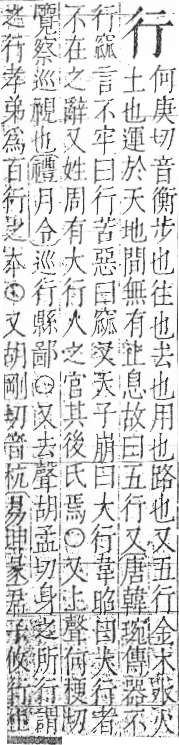 行
何庚切音衡步也往也去也用也路也又五行金木水火
土也運於天地間無有止息故曰五行又唐韓琬傳器不
行窳言不牢曰行苦惡曰窳又天子崩曰大行韋昭曰大行者
不在之辭又姓周有大行人之官其後氏焉○又上聲何梗切
覽察巡視也禮月令巡行縣鄙○又去聲胡孟切身之所行謂
孝弟爲百行之本○又胡剛切音杭易坤彖君子攸行